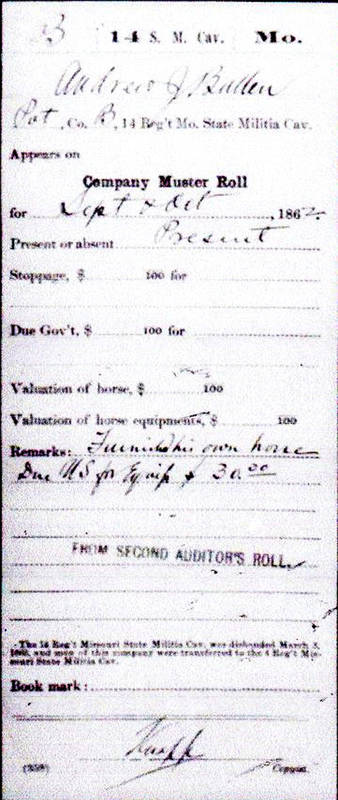 B 14 S. M. Cav. Mo.
Andrew J Bullen
Pvt, Co. B, 14 Reg't Mo. State Militia Cav.
Appears on
Company Muster Roll
for Sept & Oct, 1862.
Present or absent Present
Stoppage, $ 100 for
Due Gov't, $ 100 for
Valuation of horse, $ 100
Valuation of horse equipments, $ 100
Remarks: Furnished his own horse
Due U S for Equip $ 30.00
FROM SECOND AUDITOR'S ROLL.
The 14 Reg't Missouri State Militia Cav. was disbanded March 3,
1863, and men of this company were transferred to the 4 Reg't Mis-
souri State Militia Cav.
Book mark:
Knapp
(359) Copyist.